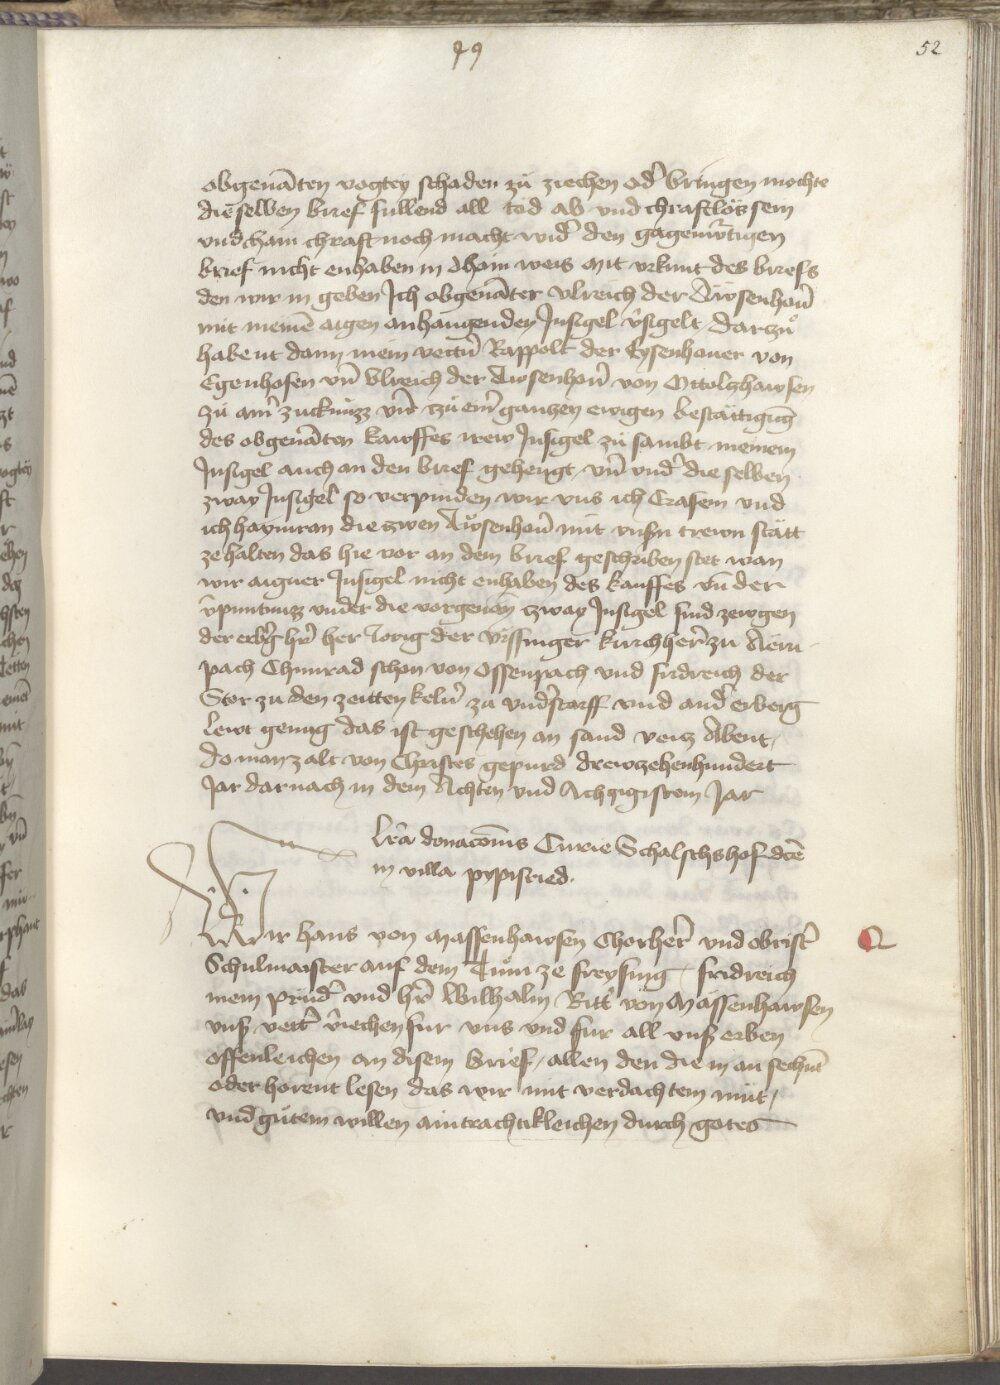 49
52
obgenāten vogtey schaden zu ziechen od̄ bringen mochte
dieselben brief sullend all tod ab vnd chraftlös sein
vnd chain chraft noch macht wid̄ den gagenwͬtigen
brief nicht enhaben in dhain weis mit vrkunt des briefs
den wir in geben Ich obgenāter vlreich der Aͤwsenhouͤ
mit meinē aigen anhangenden Insigel v̄sigelt darzuͦ
habent dann mein vettn̄ Rappolt der Eysenhouer von
Egenhofen vn̄ Vlreich der Awsenhou̅ von Ottolzhawsen
zu am̄ zucknuzz vn̄ zu ein̄ ganzen ewigen bestättigūg
des obgenāten kawffes irew Insigel zu sambt meinem
Insigel auch an den brief gehengt vn̄ vnd̄ die selben
zway Insigel so verpinden wir vns ich Erasem vnd
ich haymran die zwen Aẇsenhou̅ mit vnsn̄ trewn stätt
ze halten das hie vor an dem brief geschriben stet wan
wir aigner Insigel nicht enhaben des kauffes vn̄ der
v̄puntnuzz vnder die vorgenān̄ zway Insigel sind zewgen
der erbg̅ hr̄ her Jorig der vissinger kirchherr̄ zu
pach Chunrad schon von Ossenpach vnd fridreich der
Stor zu den zeitten keln̄ zu vnd̄starff vnd and̄ erberg
lewt genug das ist geschehen an sand veicz Abent
do man zalt von Christes gepurd drewzehenhundert
Jar darnach in dem Achten vnd Achzigistem Jar
Lr̄a donacōnis Curie Schalschshof dcē
in villa pypisried.
Wir hans von Massenhawsen Chorherr̄ vnd obrist̄
Schulmaister auf dem Tuͦm ze freysing fridreich
mein prud̄ vnd hr̄ Wilhalm Ritt̄ von Massenhawsen
vnß vett̄ v̄iechen fur vns vnd fur all vnß erben
offenleichen an disem brief allen den die in an sechn̄t
oder horent lesen das wir mit verdachtem mut
vnd gutem willen aintrachtikleichen durch gotes